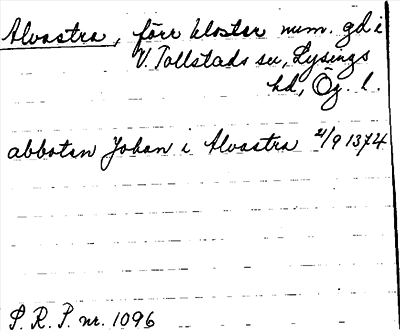 Alvastra, förr kloster num. gd i
V. Tollstads sn, Lysings
hd, Ög. l.
abboten Johan i Alvastra 21/9 1374
S. R. P. nr. 1096